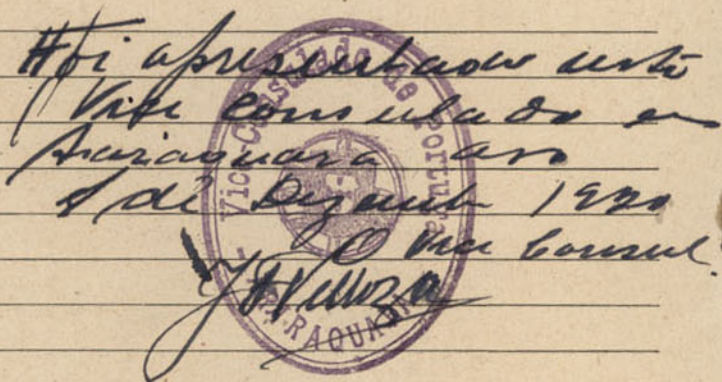 Foi apresentado neste
Vice consulado em
Araraquara aos
de Dezembro 1920
O Vice Consul
Velloza
Vice-Consulado de Portugal
- ARARAQUARA -